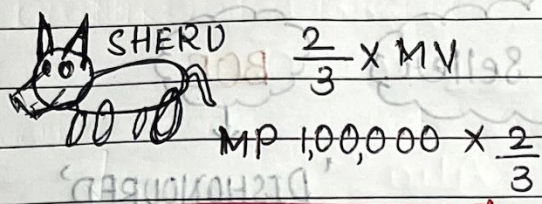 SHERU 2/3 × MV
MP 1,00,000 × 2/3